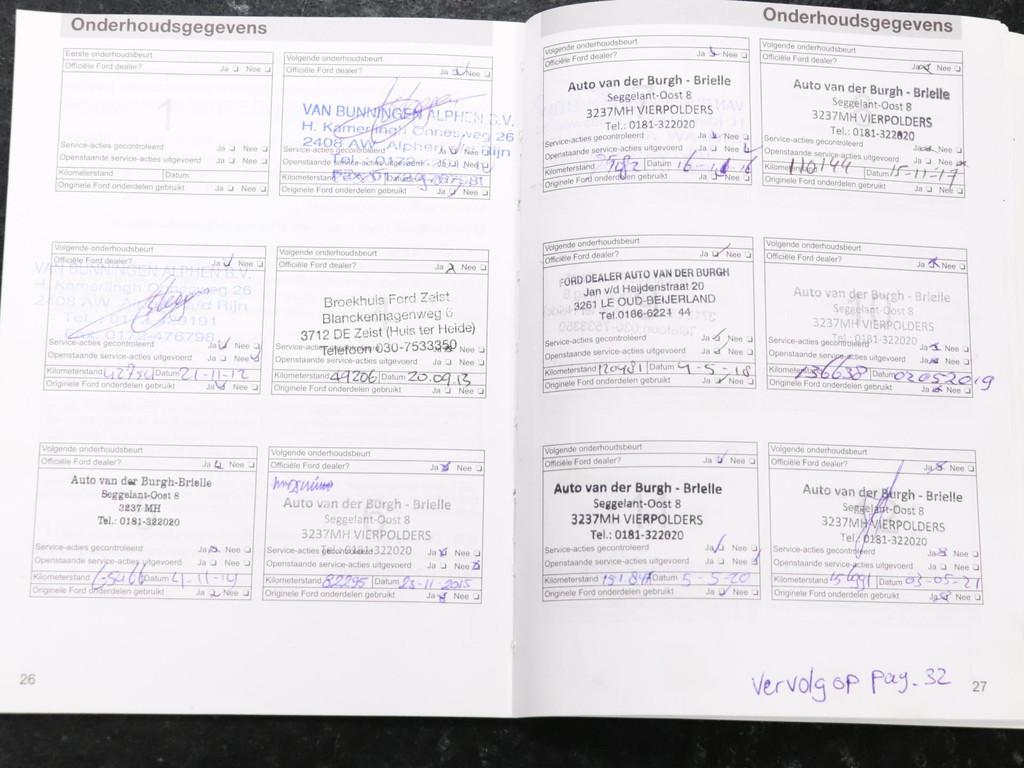 Onderhoudsgegevens
Eerste onderhoudsbeurt
Officiële Ford dealer? Ja Nee
1
Service-acties gecontroleerd Ja Nee
Openstaande service-acties uitgevoerd Ja Nee
Kilometerstand Datum
Originele Ford onderdelen gebruikt Ja Nee
Volgende onderhoudsbeurt
Officiële Ford dealer? Ja Nee
VAN BUNNINGEN ALPHEN B.V.
H. Kamerlingh Onnesweg 26
2408 AW Alphen a/d Rijn
Service-acties gecontroleerd Ja Nee
Openstaande service-acties uitgevoerd Ja Nee
Kilometerstand Datum
Originele Ford onderdelen gebruikt Ja Nee
Volgende onderhoudsbeurt
Officiële Ford dealer? Ja Nee
VAN BUNNINGEN ALPHEN B.V.
H. Kamerlingh Onnesweg 26
2408 AW Alphen a/d Rijn
Fax. 0172-476798
Service-acties gecontroleerd Ja Nee
Openstaande service-acties uitgevoerd Ja Nee
Kilometerstand Datum 21-11-12
Originele Ford onderdelen gebruikt Ja Nee
Volgende onderhoudsbeurt
Officiële Ford dealer? Ja Nee
Broekhuis Ford Zeist
Blanckenhagenweg 6
3712 DE Zeist (Huis ter Heide)
Telefoon 030-7533350
Service-acties gecontroleerd Ja Nee
Openstaande service-acties uitgevoerd Ja Nee
Kilometerstand 49206 Datum 20.09.13
Originele Ford onderdelen gebruikt Ja Nee
Volgende onderhoudsbeurt
Officiële Ford dealer? Ja Nee
Auto van der Burgh-Brielle
Seggelant-Oost 8
3237 MH
Tel.: 0181-322020
Service-acties gecontroleerd Ja Nee
Openstaande service-acties uitgevoerd Ja Nee
Kilometerstand Datum 4-11-14
Originele Ford onderdelen gebruikt Ja Nee
Volgende onderhoudsbeurt
Officiële Ford dealer? Ja Nee
Auto van der Burgh - Brielle
Seggelant-Oost 8
3237MH VIERPOLDERS
Tel.: 0181-322020
Service-acties gecontroleerd Ja Nee
Openstaande service-acties uitgevoerd Ja Nee
Kilometerstand 82295 Datum 23-11-2015
Originele Ford onderdelen gebruikt Ja Nee
26
Onderhoudsgegevens
Volgende onderhoudsbeurt
Officiële Ford dealer? Ja Nee
Auto van der Burgh - Brielle
Seggelant-Oost 8
3237MH VIERPOLDERS
Tel.: 0181-322020
Service-acties gecontroleerd Ja Nee
Openstaande service-acties uitgevoerd Ja Nee
Kilometerstand Datum 16-11-16
Originele Ford onderdelen gebruikt Ja Nee
Volgende onderhoudsbeurt
Officiële Ford dealer? Ja Nee
Auto van der Burgh - Brielle
Seggelant-Oost 8
3237MH VIERPOLDERS
Tel.: 0181-322020
Service-acties gecontroleerd Ja Nee
Openstaande service-acties uitgevoerd Ja Nee
Kilometerstand 110144 Datum 15-11-17
Originele Ford onderdelen gebruikt Ja Nee
Volgende onderhoudsbeurt
Officiële Ford dealer? Ja Nee
FORD DEALER AUTO VAN DER BURGH
Jan v/d Heijdenstraat 20
3261 LE OUD-BEIJERLAND
Tel.0186-6221 44
Service-acties gecontroleerd Ja Nee
Openstaande service-acties uitgevoerd Ja Nee
Kilometerstand 120481 Datum 4-5-18
Originele Ford onderdelen gebruikt Ja Nee
Volgende onderhoudsbeurt
Officiële Ford dealer? Ja Nee
Auto van der Burgh - Brielle
Seggelant-Oost 8
3237MH VIERPOLDERS
Tel.: 0181-322020
Service-acties gecontroleerd Ja Nee
Openstaande service-acties uitgevoerd Ja Nee
Kilometerstand 136638 Datum 02052019
Originele Ford onderdelen gebruikt Ja Nee
Volgende onderhoudsbeurt
Officiële Ford dealer? Ja Nee
Auto van der Burgh - Brielle
Seggelant-Oost 8
3237MH VIERPOLDERS
Tel.: 0181-322020
Service-acties gecontroleerd Ja Nee
Openstaande service-acties uitgevoerd Ja Nee
Kilometerstand Datum 5-5-20
Originele Ford onderdelen gebruikt Ja Nee
Volgende onderhoudsbeurt
Officiële Ford dealer? Ja Nee
Auto van der Burgh - Brielle
Seggelant-Oost 8
3237MH VIERPOLDERS
Tel.: 0181-322020
Service-acties gecontroleerd Ja Nee
Openstaande service-acties uitgevoerd Ja Nee
Kilometerstand Datum 03-05-21
Originele Ford onderdelen gebruikt Ja Nee
vervolg op pag. 32
27